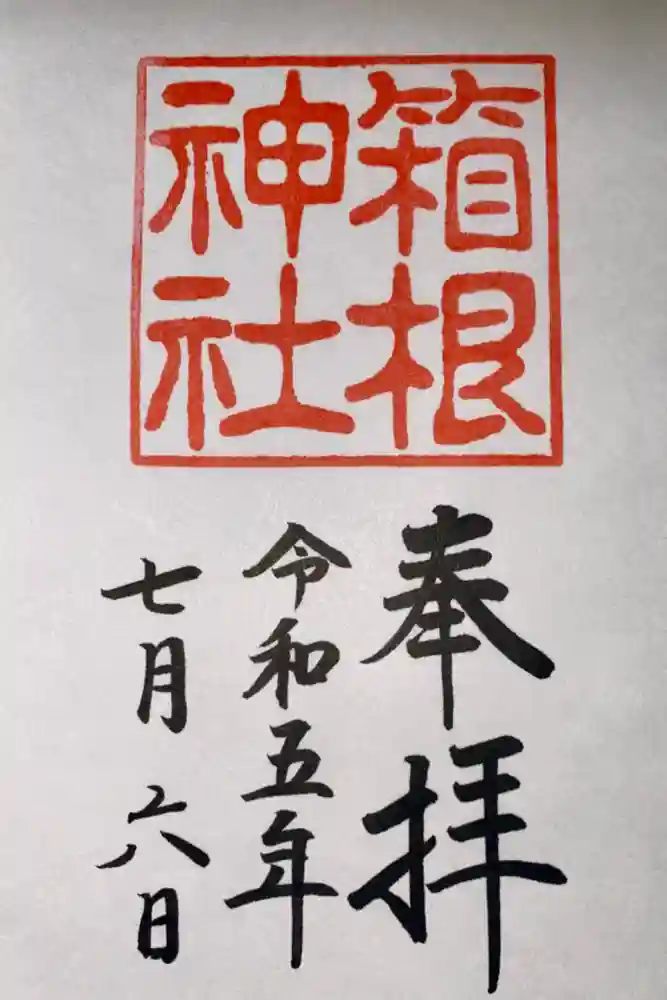 箱根
神社
奉拝
令和五年
七月六日